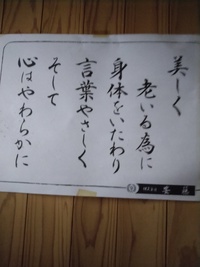 美しく
老いる為に
身体をいたわり
言葉やさしく
そして
心はやわらかに